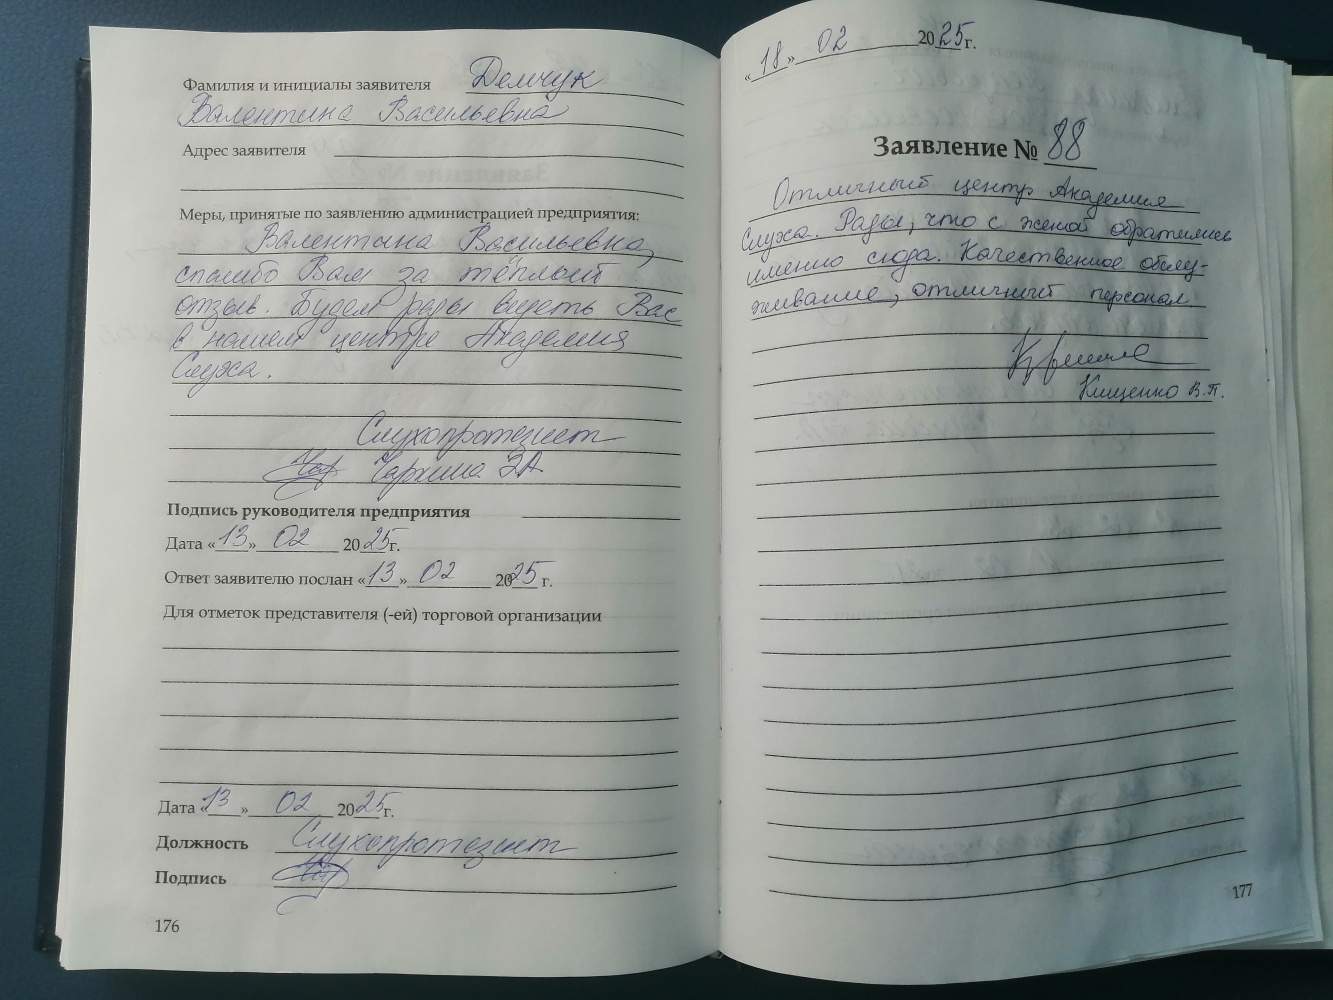 Фамилия и инициалы заявителя Демчук
Валентина Васильевна
Адрес заявителя
Меры, принятые по заявлению администрацией предприятия:
Валентина Васильевна,
спасибо Вам за тёплый
отзыв. Будем рады видеть Вас
в нашем центре Академия
Слуха.
Слухопротезист
Чаркина ЗА
Подпись руководителя предприятия
Дата «13» 02 2025г.
Ответ заявителю послан «13» 02 2025 г.
Для отметок представителя (-ей) торговой организации
Дата «13» 02 2025г.
Должность Слухопротезист
Подпись
176
«18» 02 2025г.
Заявление № 88
Отличный центр Академия
Слуха. Рады, что с женой обратились
именно сюда. Качественное обслу-
живание, отличный персонал
Кищенко В.П.
177